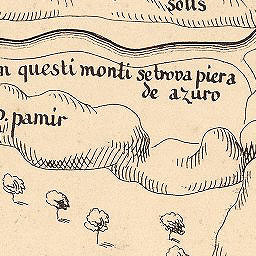 sous
in questi monti se trova piera
de azuro
p. pamir